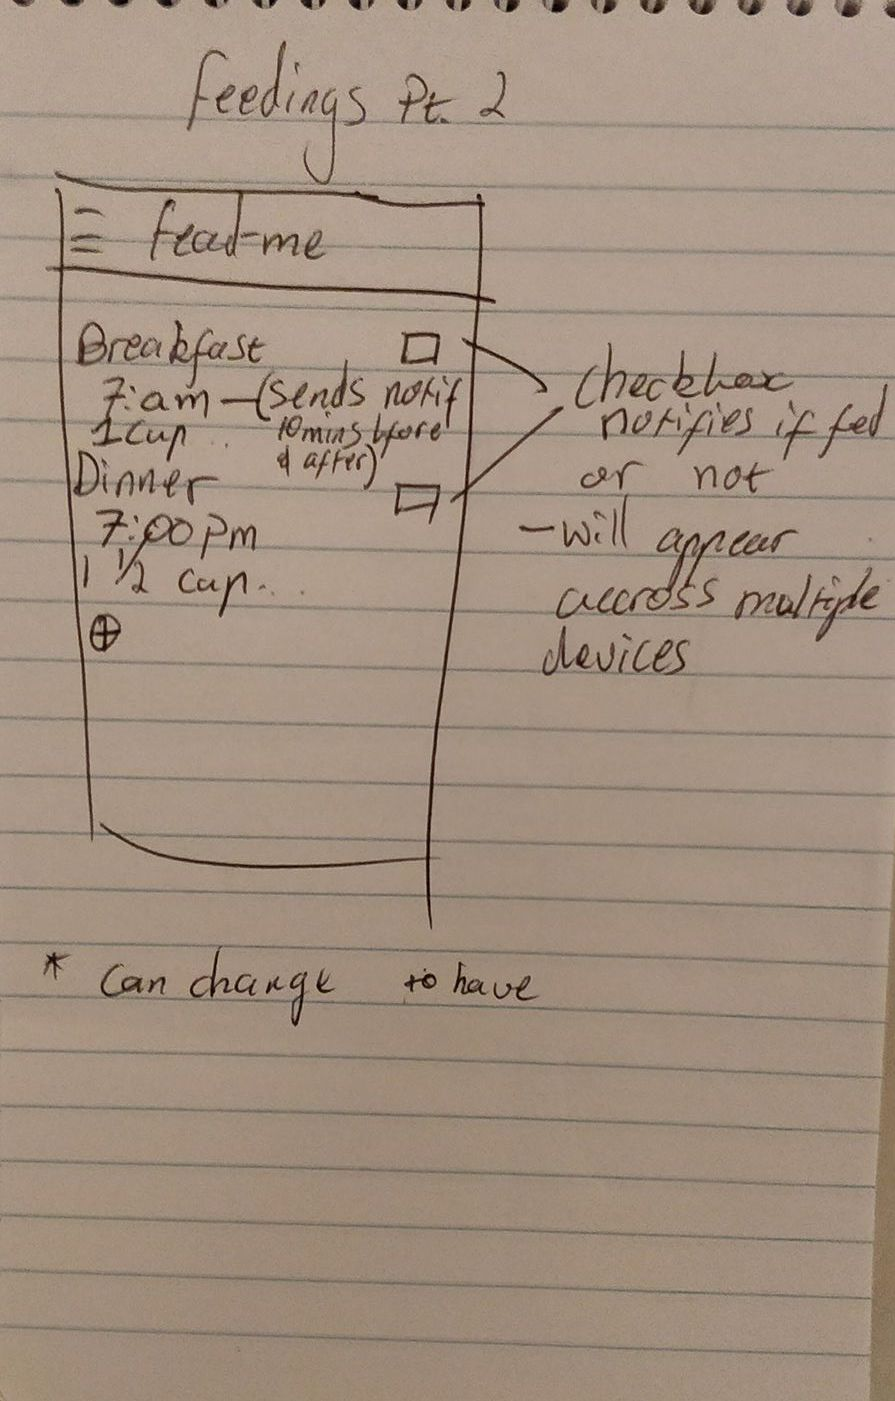 Feedings Pt. 2
Fead-me
Breakfast
7:am - (sends notif
10mins bfore
& after)
1 cup
Dinner
7:00 pm
1 1/2 cup..
Checkbox
notifies if fed
or not
- will appear
accross multiple
devices
* Can change to have